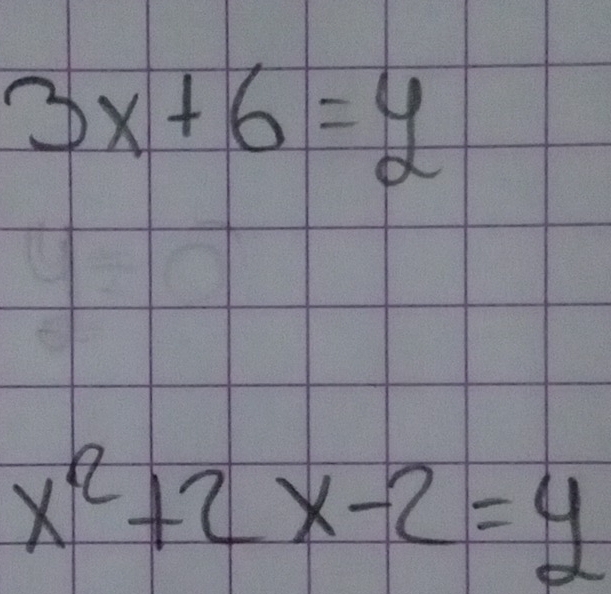 3x+6=y
x²+2x-2=y